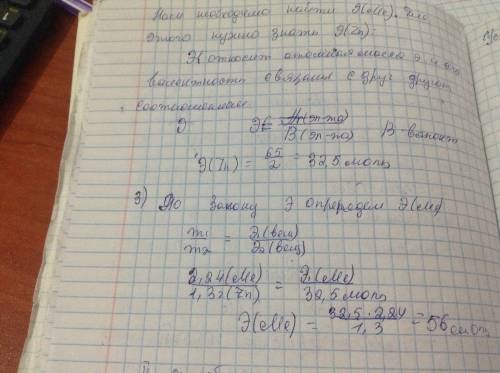 Нам необходимо найти Э(Ме). Для
этого нужно знать Э(Zn):
Э, относит. атомная масса э. и его
валентность связаны с друг другом
соотношением
Э Э = Ar(эл-та) / В(эл-та) В - валент
Э(Zn) = 65/2 = 32,5 моль
3) По закону Э определем Э(Ме)
m1/m2 = Э1(вещ)/Э2(вещ)
2,24(Ме)/1,3г(Zn) = Э1(Ме)/32,5 моль
Э(Ме) = 32,5 · 2,24/1,3 = 56 моль